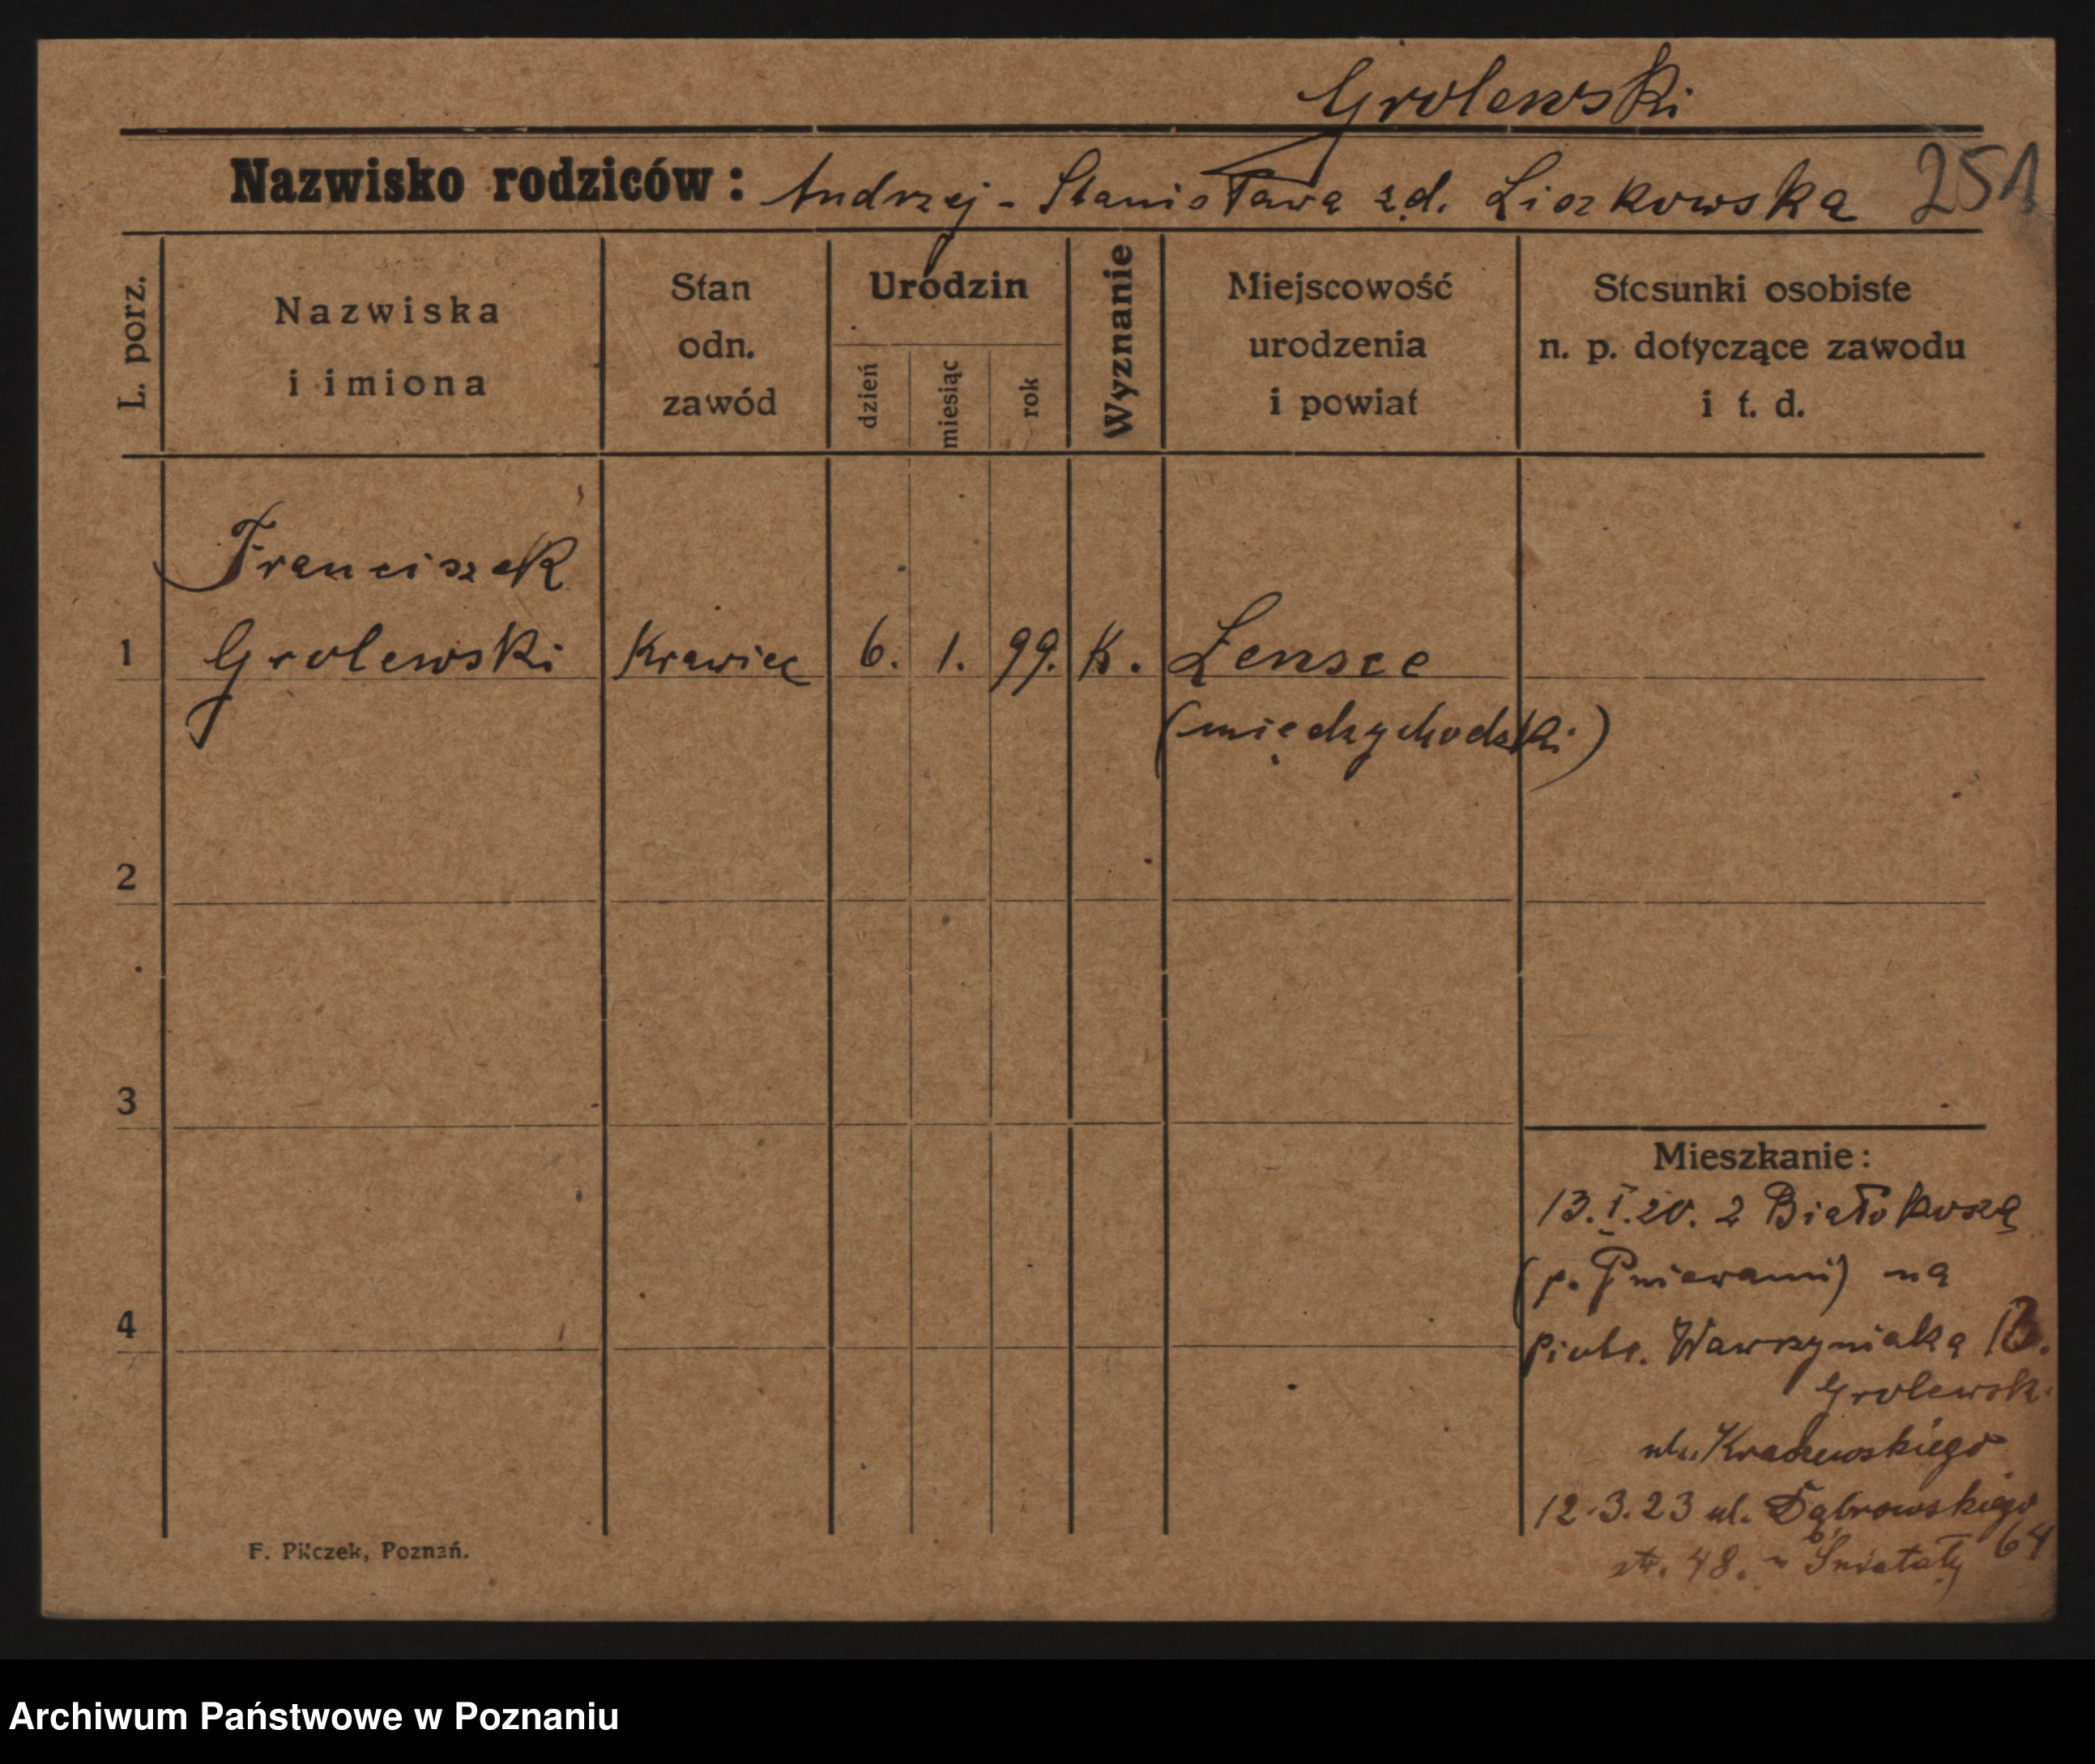 Grolewski
Nazwisko rodziców: Andrzej - Stanisława z d. Liszkowska 251
L. porz.
Nazwiska i imiona
Stan odn. zawód
Urodzin
dzień
miesiąc
rok
Wyznanie
Miejscowość urodzenia i powiat
Stosunki osobiste n. p. dotyczące zawodu i t. d.
Franciszek
1 Grolewski Krawiec 6. 1. 99. K.
(międzychodzki)
2
3
4
Mieszkanie:
13.I.20. z Białokosza
(p. Pniewami) na
Wawrzyniaka 13.
Grolewski
ul. Kraszewskiego
12.3.23 ul. Dąbrowskiego
64
48.
F. Pilczek, Poznań.
Archiwum Państwowe w Poznaniu